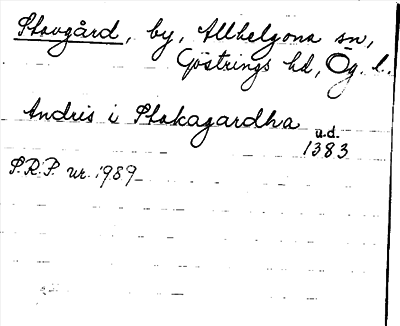 Skovgård, by, Allhelgona sn,
Göstrings hd, Ög. l.
Andris i Skokagardha u.d.
1383
S.R.P. nr. 1989